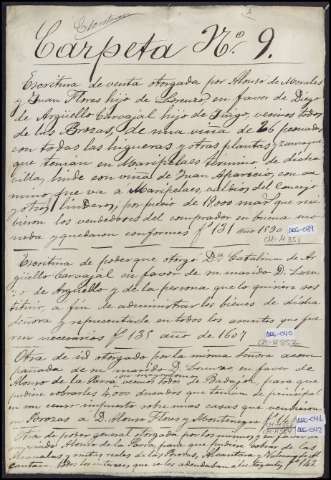 Carpeta Nº 9.
Escritura de venta otorgada por Alonso de Morales
y Juan Flores hijo de Lorenzo en favor de Diego
de Argüello Carvajal hijo de Diego, vecinos todos
de las Brozas, de una viña de 26 peonadas
con todas las higueras y otras plantas y
que tenían en Maripelaes término de dicha
villa, linde con viña de Juan Aparicio, con ca
mino que va a Maripelaes, valdios del Concejo
y otros linderos, por precio de 19.000 mars que reci
bieron los vendedores del comprador en buena mo
neda y quedaron conformes fº 131 año 1590
Escritura de poder que otorgó Dª Catalina de Ar
güello Carvajal en favor de su marido D. Loren
zo de Argüello y de la persona que lo quisiera sus
tituir, a fin de administrar los bienes de dicha
Señora y representarla en todos los asuntos que fue
ren necesarios fº 135 año de 1607
Otra de id otorgado por la misma Señora acom
pañada de su marido D. Lorenzo, en favor de
Alonso de la Parra vecinos todos de Badajoz, para que
pudiese cobrarles 4.000 ducados que tenían de principal
en un censo impuesto sobre unas casas que vendieron
Brozas a D. Alonso Flores y Montenegro
Otra de poder general otorgada por los mismos en favor de
Alonso de la Parra para que pudiese cobrar de las
Alcavalas y otras rentas de las Brozas, Alcantara y Valencia de Al
cantara